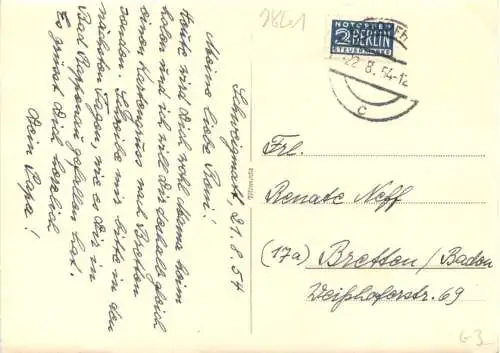 28401
NOTOPFER
2 BERLIN
STEUERMARKE
-22.8.54-12
c
Schwaigmatt, 21.8.54
Meine liebe Reni!
Heute wird Dich wohl Mama heim
holen und ich will Dir deshalb gleich
einen Kartengruss nach Bretten
senden. Schreibe mir bitte in den
nächsten Tagen, wie es Dir in
Bad Rappenau gefallen hat.
Es grüsst Dich herzlich
Dein Papa!
Frl.
Renate Neff
(17a) Bretten/Baden
Weißhoferstr. 69
G3